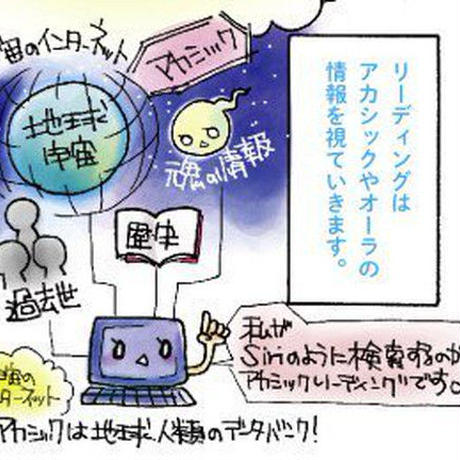 宙のインターネット
アカシック
リーディングは
アカシックやオーラの
情報を視ていきます。
地球
宇宙
魂の情報
歴史
過去世
私が
Siriのように検索するのが
アカシックリーディングです。
宙の
ターネット
アカシックは地球人類のデータバンク!